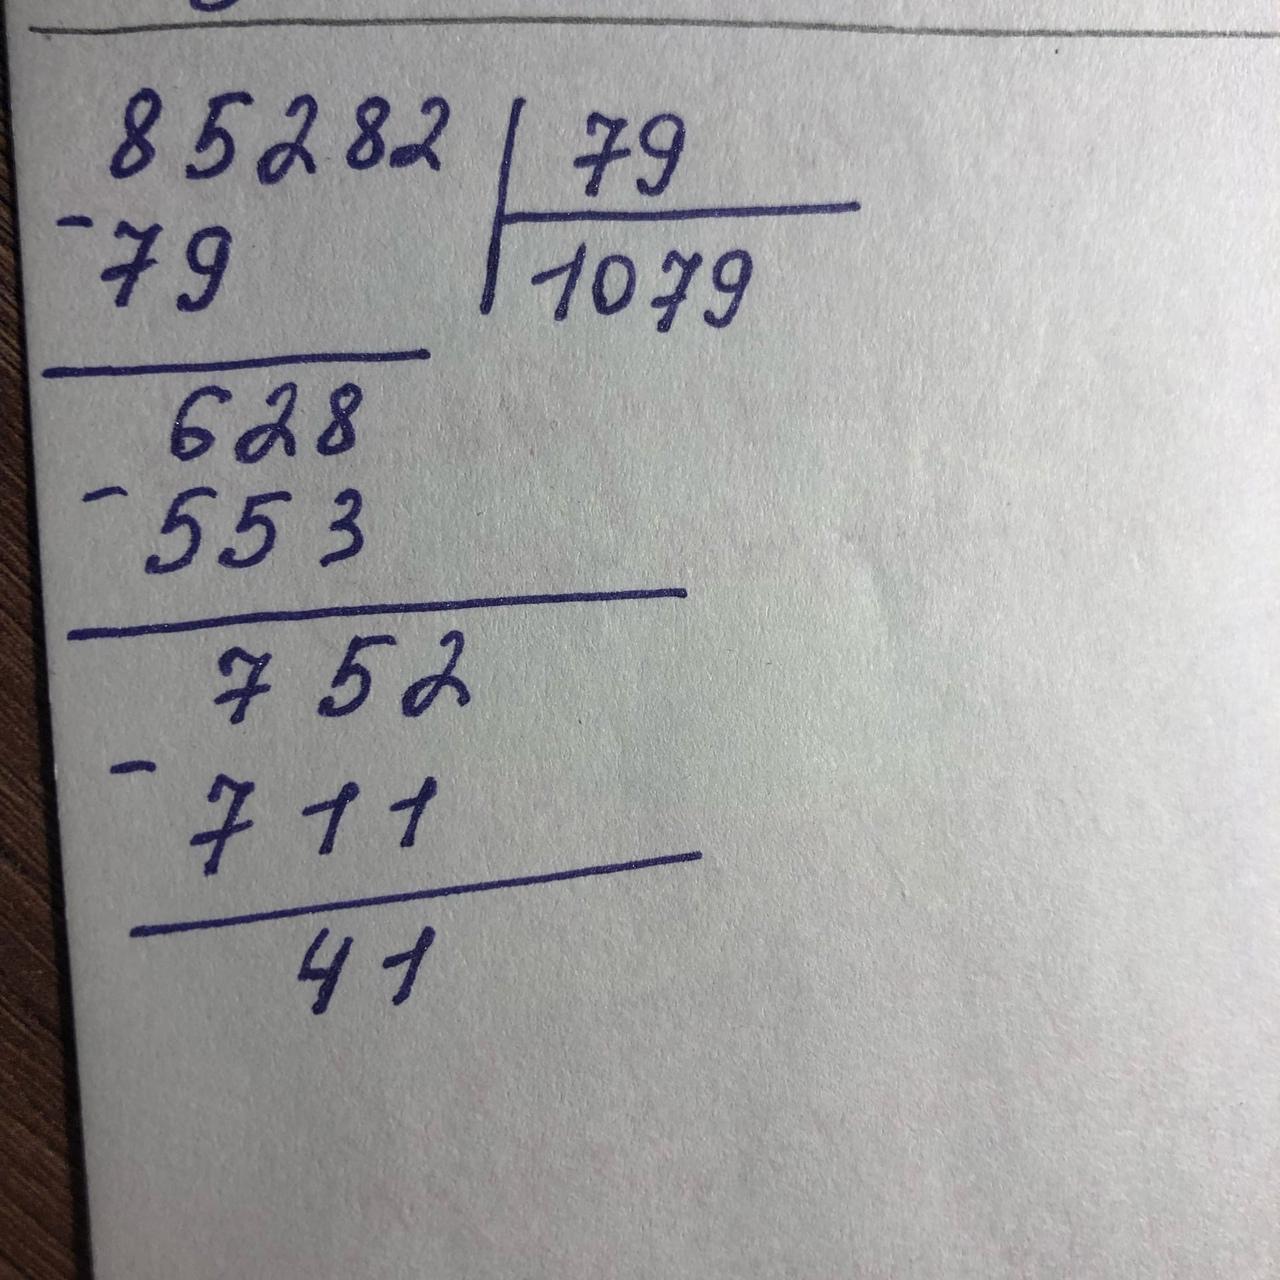 85282 79
-79 1079
628
-553
752
-711
41